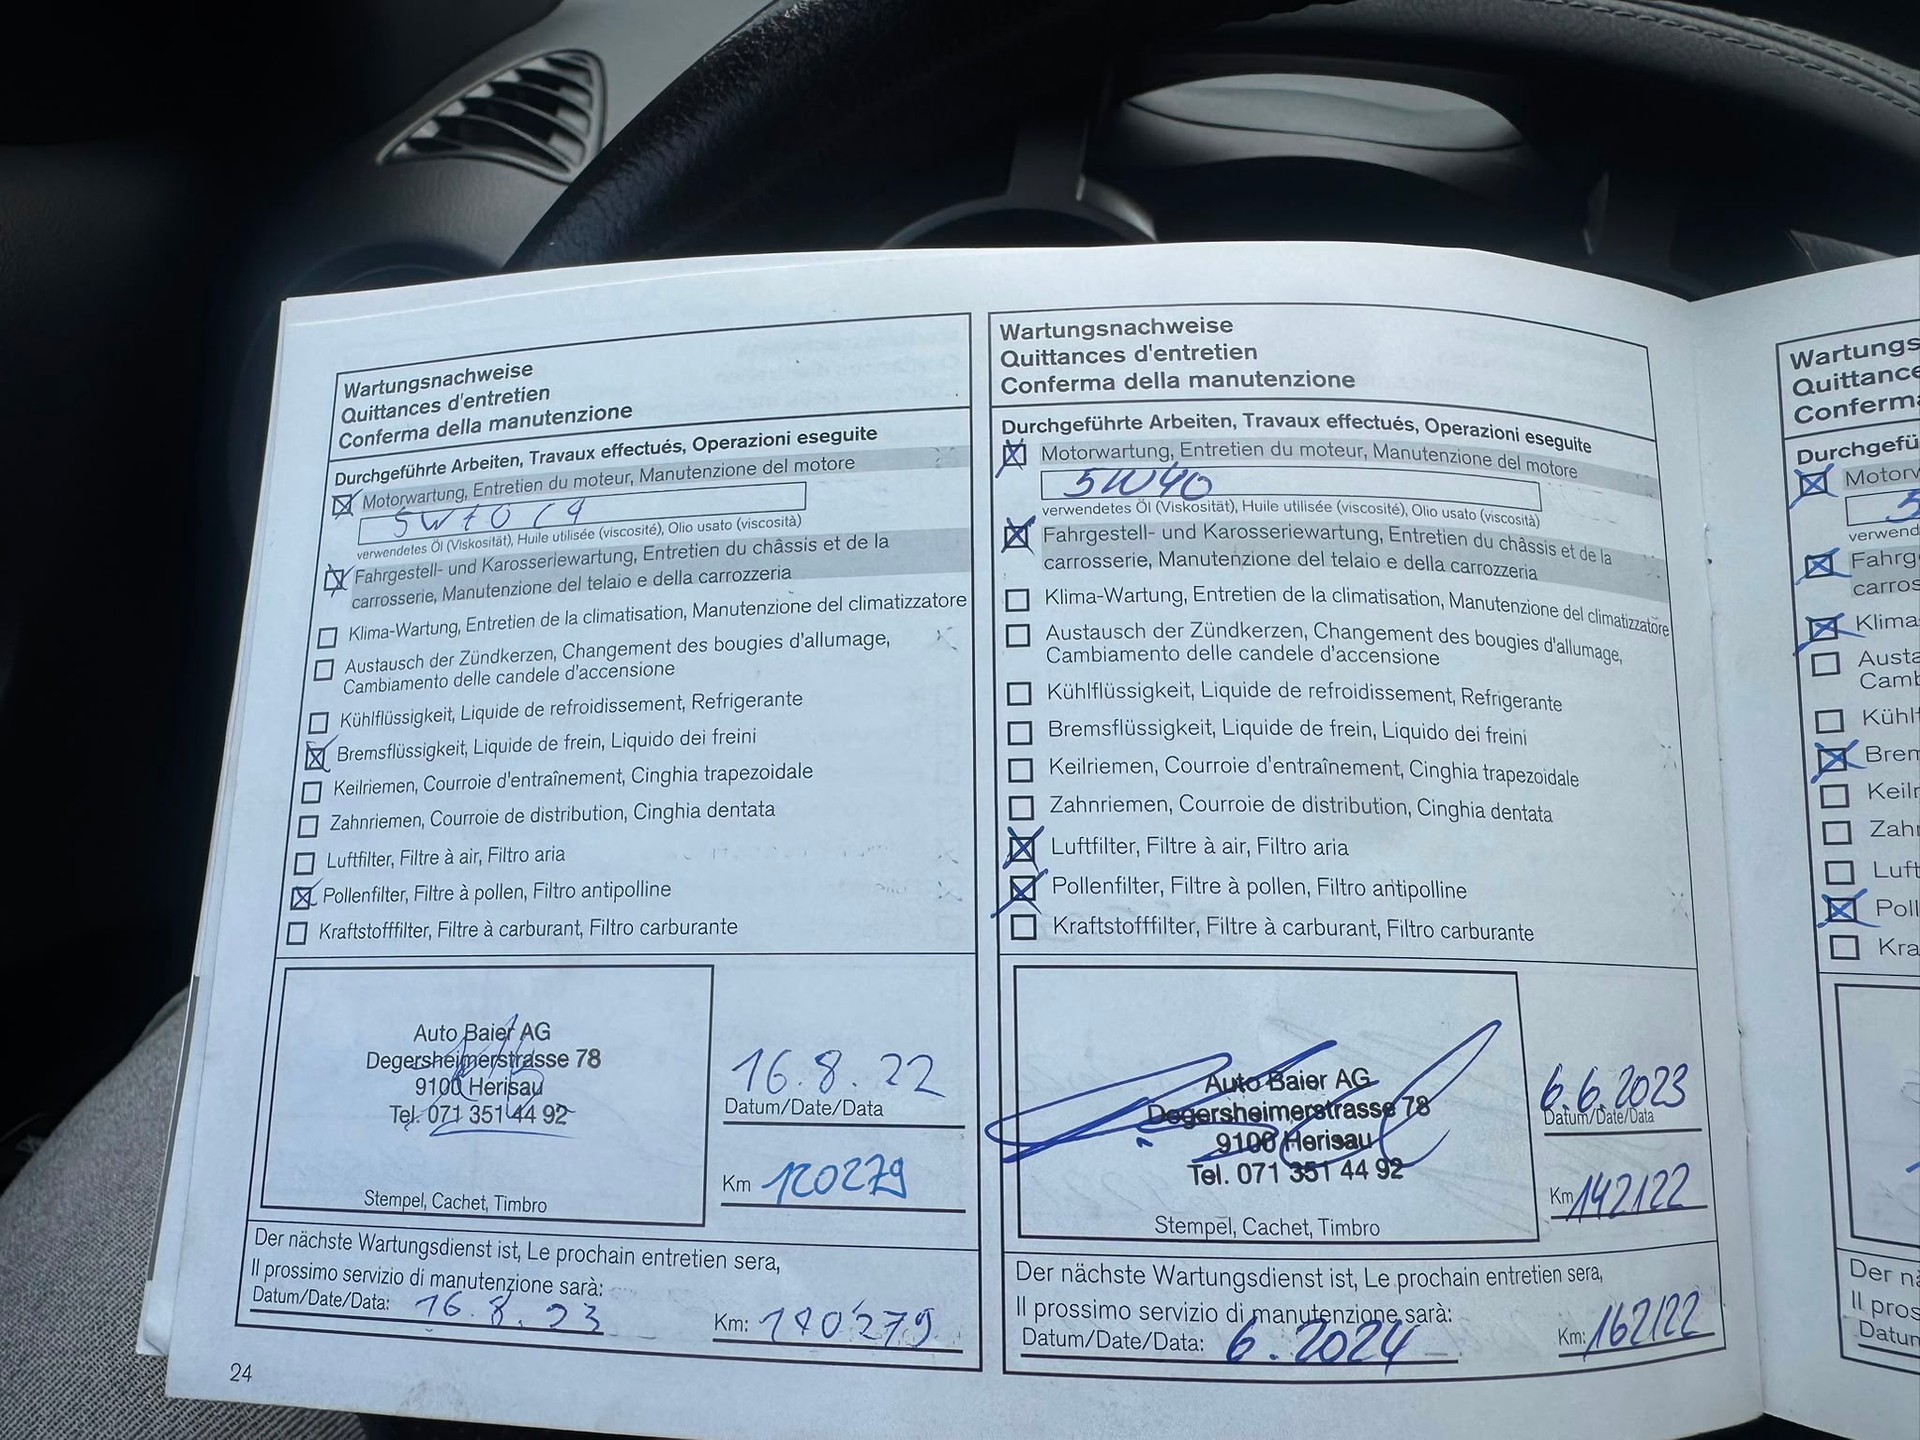 Wartungsnachweise
Quittances d'entretien
Conferma della manutenzione
Durchgeführte Arbeiten, Travaux effectués, Operazioni eseguite
Motorwartung, Entretien du moteur, Manutenzione del motore
verwendetes Öl (Viskosität), Huile utilisée (viscosité), Olio usato (viscosità)
Fahrgestell- und Karosseriewartung, Entretien du châssis et de la
carrosserie, Manutenzione del telaio e della carrozzeria
Klima-Wartung, Entretien de la climatisation, Manutenzione del climatizzatore
Austausch der Zündkerzen, Changement des bougies d'allumage,
Cambiamento delle candele d'accensione
Kühlflüssigkeit, Liquide de refroidissement, Refrigerante
Bremsflüssigkeit, Liquide de frein, Liquido dei freini
Keilriemen, Courroie d'entraînement, Cinghia trapezoidale
Zahnriemen, Courroie de distribution, Cinghia dentata
Luftfilter, Filtre à air, Filtro aria
Pollenfilter, Filtre à pollen, Filtro antipolline
Kraftstofffilter, Filtre à carburant, Filtro carburante
Auto Baier AG
Degersheimerstrasse 78
9100 Herisau
Tel. 071 351 44 92
Stempel, Cachet, Timbro
16.8.22
Datum/Date/Data
Km 120279
Der nächste Wartungsdienst ist, Le prochain entretien sera,
Il prossimo servizio di manutenzione sarà:
Datum/Date/Data: 16.8.23 Km: 140279
24
Wartungsnachweise
Quittances d'entretien
Conferma della manutenzione
Durchgeführte Arbeiten, Travaux effectués, Operazioni eseguite
Motorwartung, Entretien du moteur, Manutenzione del motore
5W40
verwendetes Öl (Viskosität), Huile utilisée (viscosité), Olio usato (viscosità)
Fahrgestell- und Karosseriewartung, Entretien du châssis et de la
carrosserie, Manutenzione del telaio e della carrozzeria
Klima-Wartung, Entretien de la climatisation, Manutenzione del climatizzatore
Austausch der Zündkerzen, Changement des bougies d'allumage,
Cambiamento delle candele d'accensione
Kühlflüssigkeit, Liquide de refroidissement, Refrigerante
Bremsflüssigkeit, Liquide de frein, Liquido dei freini
Keilriemen, Courroie d'entraînement, Cinghia trapezoidale
Zahnriemen, Courroie de distribution, Cinghia dentata
Luftfilter, Filtre à air, Filtro aria
Pollenfilter, Filtre à pollen, Filtro antipolline
Kraftstofffilter, Filtre à carburant, Filtro carburante
Auto Baier AG
Degersheimerstrasse 78
9100 Herisau
Tel. 071 351 44 92
Stempel, Cachet, Timbro
6.6.2023
Datum/Date/Data
Km 142122
Der nächste Wartungsdienst ist, Le prochain entretien sera,
Il prossimo servizio di manutenzione sarà:
Datum/Date/Data: 6.2024 Km: 162122
Wartungs
Quittance
Conferma
Durchgefü
Motorw
5
verwend
Fahrge
carros
Klima
Austa
Camb
Kühlf
Brem
Keilr
Zahr
Luft
Poll
Kra
Der nä
Il pros
Datum